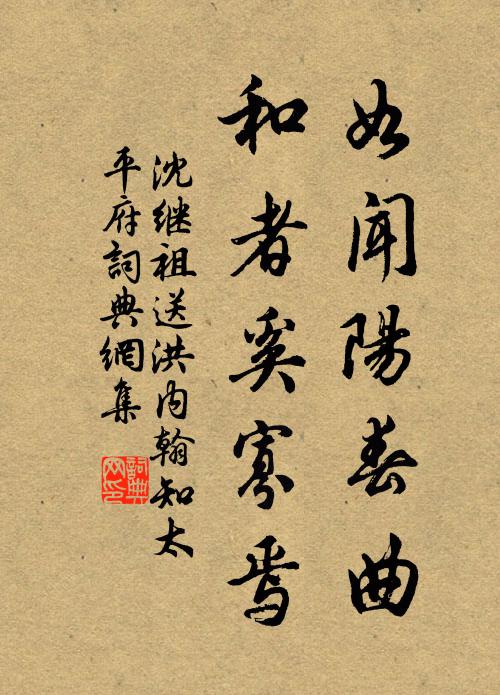 如聞陽春曲
和者奚寡焉
沈继祖送洪内翰知太
平府詞典網集
詞典网印